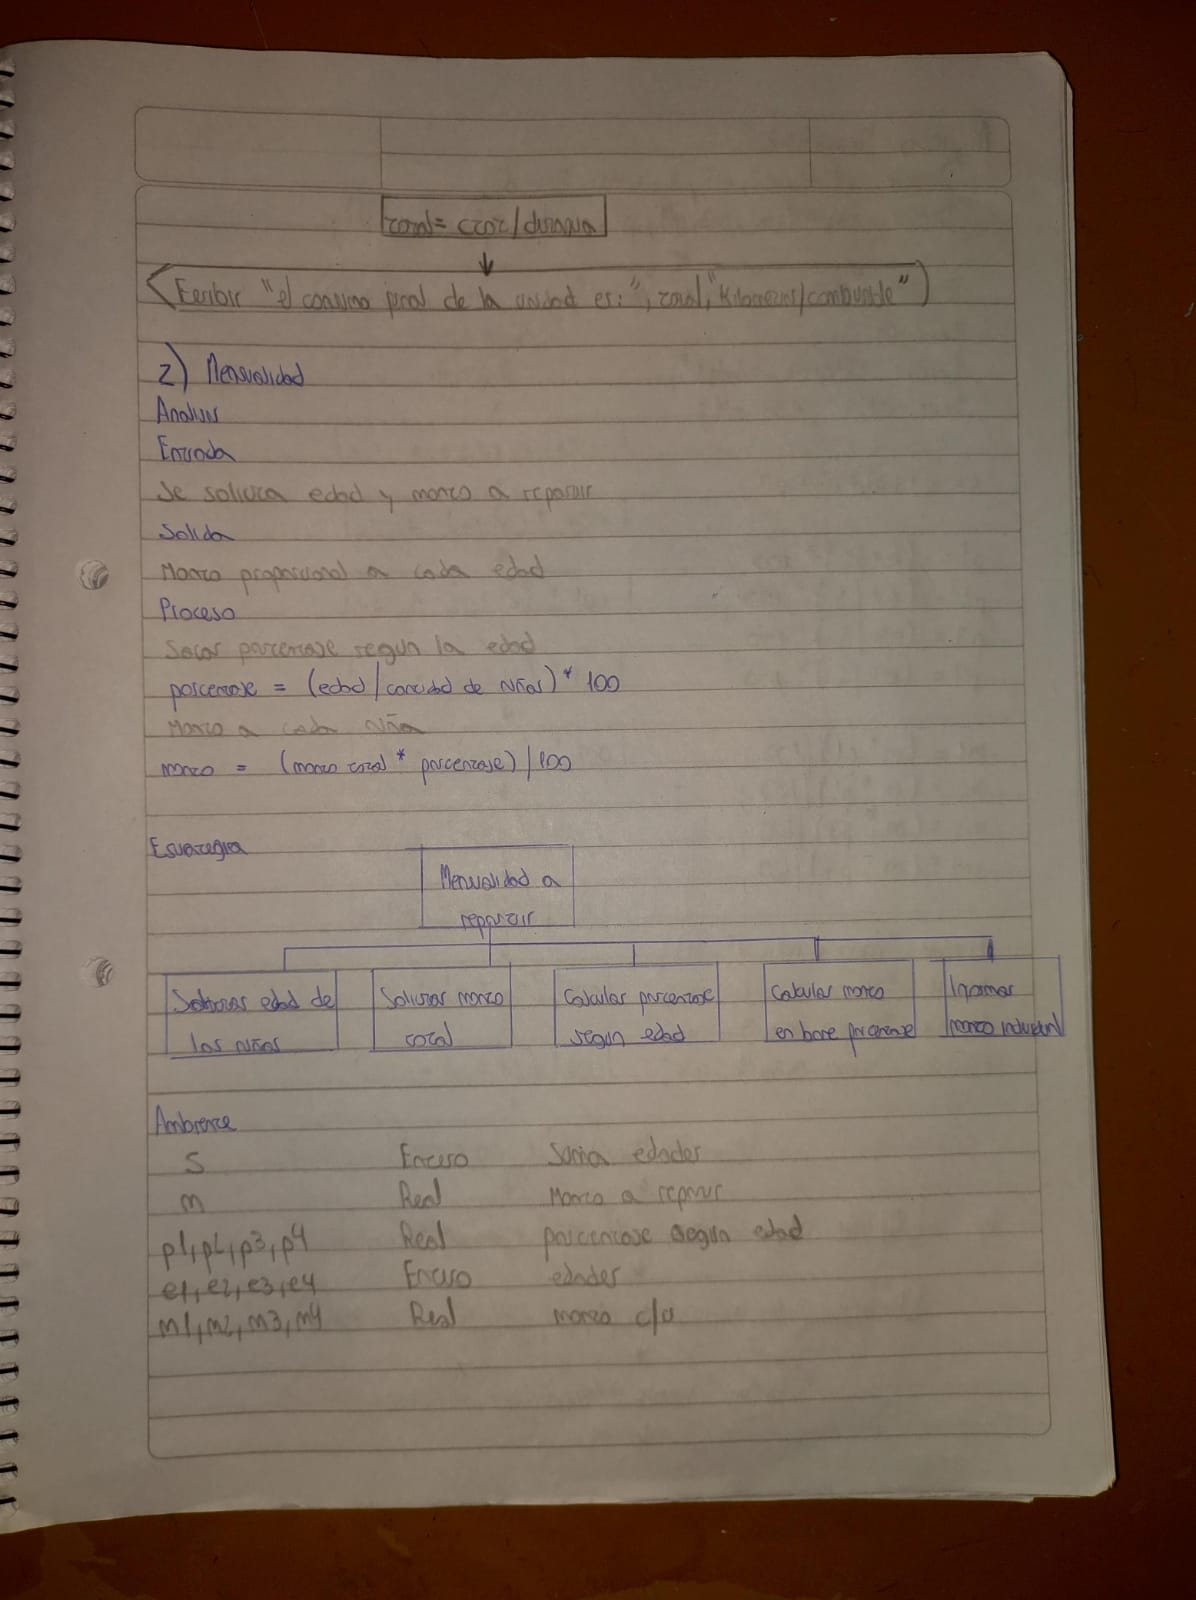 total= ctot/distancia
Escribir "el consumo final de la unidad es:", total, "Kilometros/combustible"
2) Mensualidad
Analisis
Entrada
Se solicita edad y monto a repartir
Salida
Monto proporcional a cada edad
Proceso
Sacar porcentaje segun la edad
porcentaje = (edad/cantidad de niños) * 100
Monto a cada niño
monto = (monto total * porcentaje) / 100
Estrategia
Mensualidad a
repartir
Solicitar edad de
los niños
Solicitar monto
total
Calcular porcentaje
segun edad
Calcular monto
en base porcentaje
Informar
monto individual
Ambiente
S Entero Suma edades
m Real Monto a repartir
p1, p2, p3, p4 Real porcentaje segun edad
e1, e2, e3, e4 Entero edades
m1, m2, m3, m4 Real monto c/u